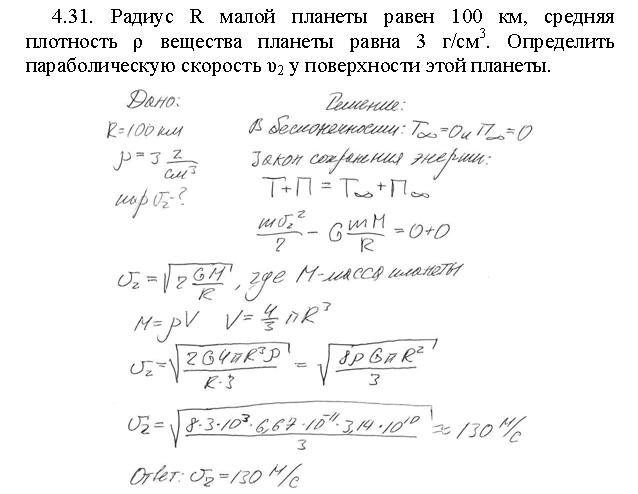 4.31. Радиус R малой планеты равен 100 км, средняя
плотность ρ вещества планеты равна 3 г/см³. Определить
параболическую скорость υ₂ у поверхности этой планеты.
Дано:
R=100 км
ρ=3 г/см³
пар υ₂-?
Решение:
В бесконечности: T∞=0 и П∞=0
Закон сохранения энергии:
T+П = T∞+П∞
mυ₂²/2 − G mM/R = 0+0
υ₂ = √(2GM/R), где M-масса планеты
M=ρV V=4/3 πR³
υ₂=√(2G4πR³ρ/R·3) = √(8ρGπR²/3)
υ₂=√(8·3·10³·6,67·10⁻¹¹·3,14·10¹⁰/3) ≈ 130 м/с
Ответ: υ₂=130 м/с